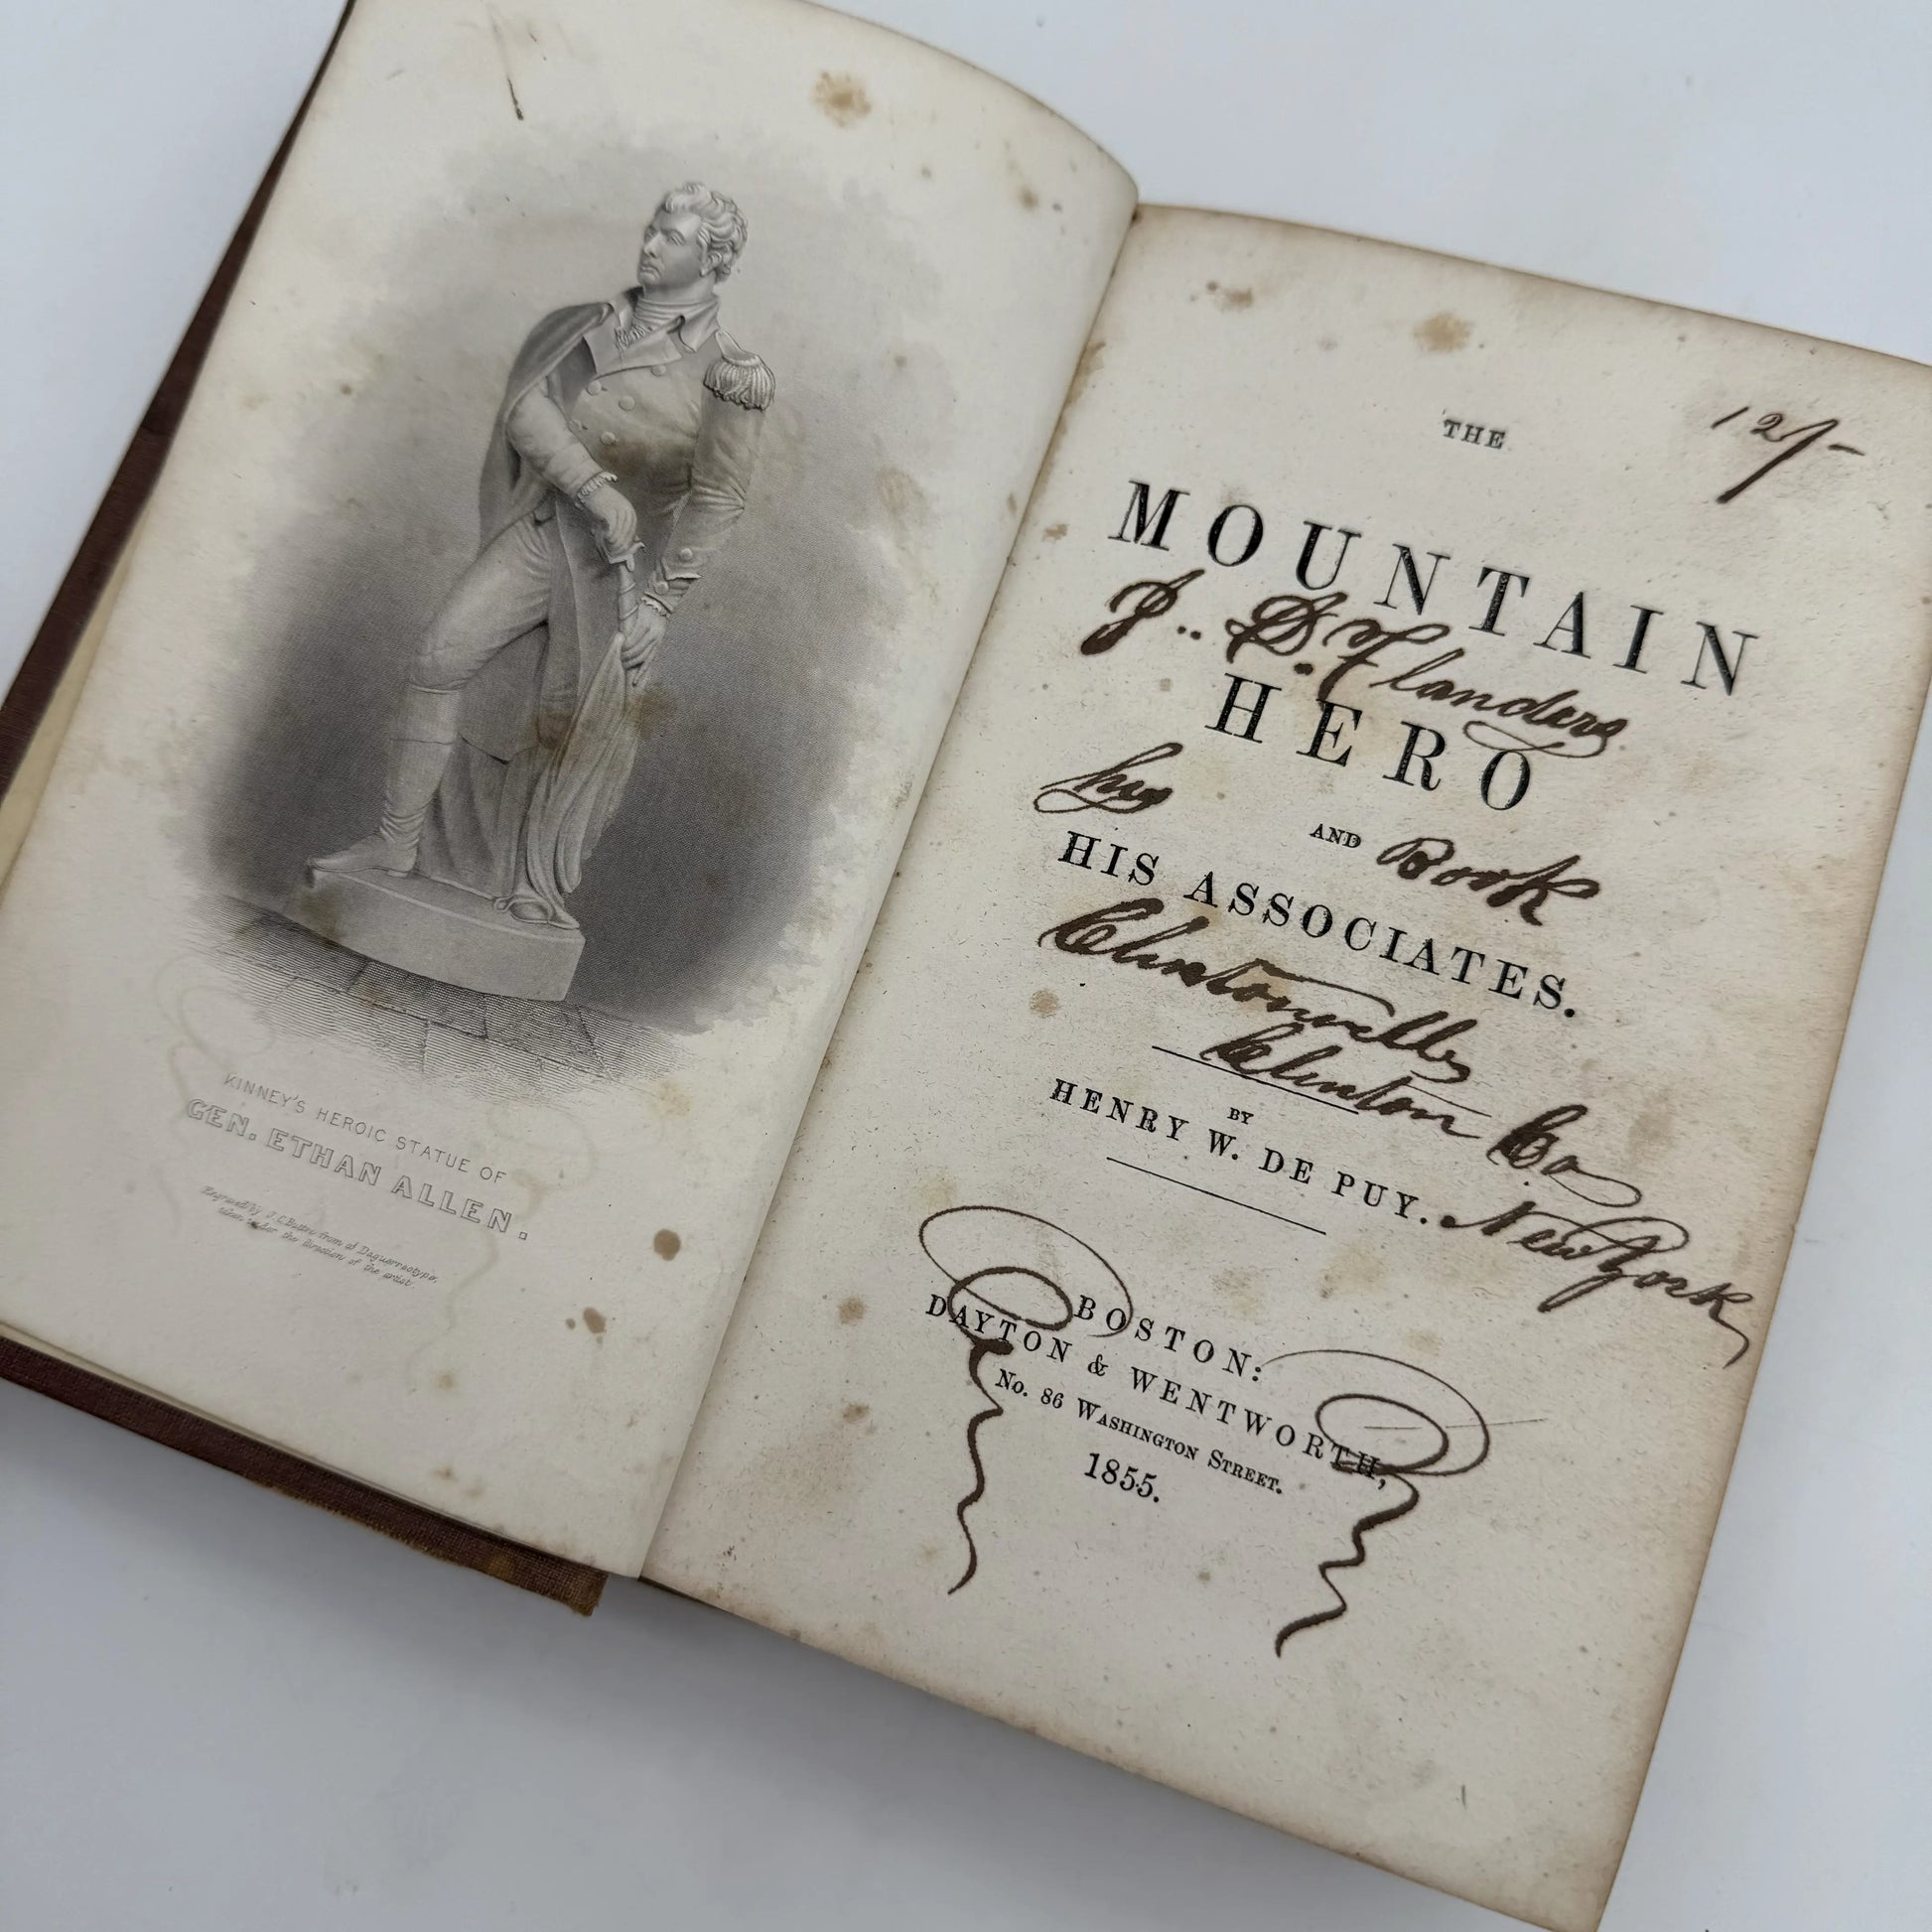 KINNEY'S HEROIC STATUE OF
GEN. ETHAN ALLEN.
Engraved by J.C. Buttre from a Daguerreotype,
taken under the direction of the artist.
12/-
THE
MOUNTAIN
J.. S. Flanders
HERO
his
AND Book
HIS ASSOCIATES.
Clintonville
Clinton Co
BY
HENRY W. DE PUY.
New York
BOSTON:
DAYTON & WENTWORTH,
No. 86 WASHINGTON STREET.
1855.